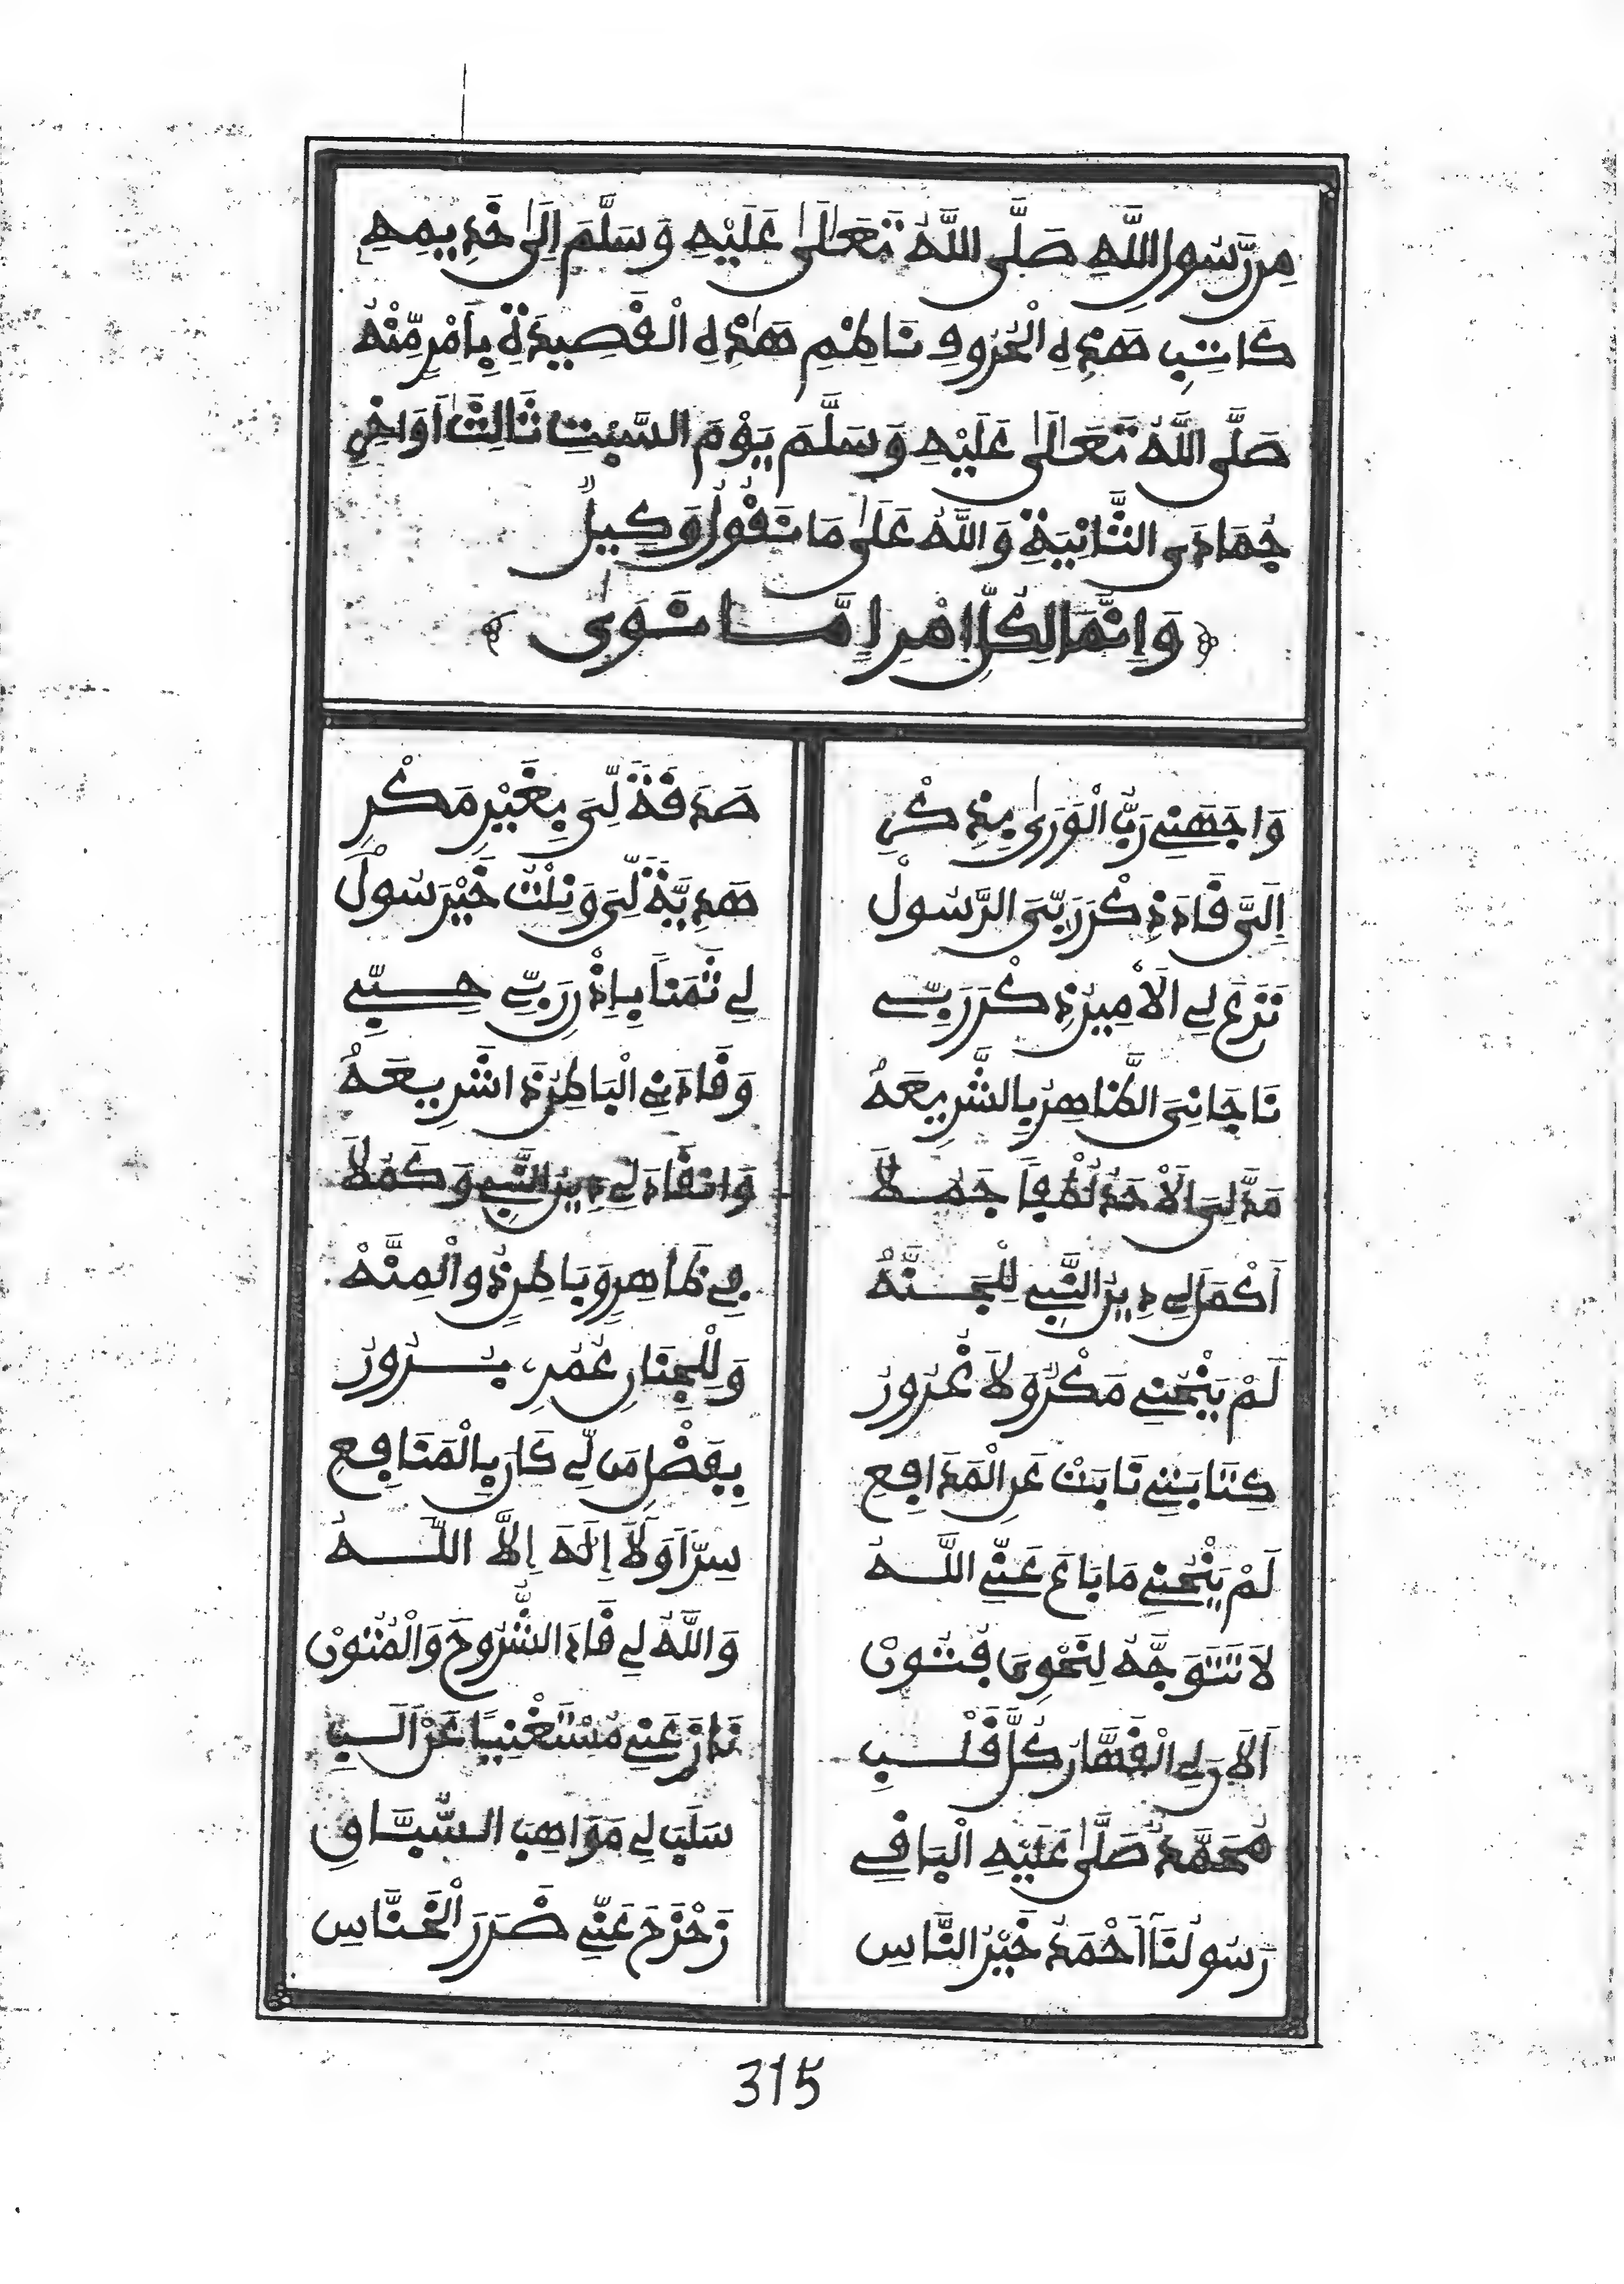 مِن رَّسُولِ اللَّهِ صَلَّى اللَّهُ تَعَالَىٰ عَلَيْهِ وَسَلَّمَ إِلَىٰ خَدِيمِهِ
كَاتِبِ هَذِهِ الْحُرُوفِ نَاظِمِ هَذِهِ الْقَصِيدَةِ بِأَمْرٍ مِّنْهُ
صَلَّى اللَّهُ تَعَالَىٰ عَلَيْهِ وَسَلَّمَ يَوْمَ السَّبْتِ ثَالِثَ أَوَاخِرِ
جُمَادَى الثَّانِيَةِ وَاللَّهُ عَلَىٰ مَا نَقُولُ وَكِيلٌ
وَإِنَّمَا لِكُلِّ امْرِإٍ مَّا نَوَى
وَاجَهَنِي رَبُّ الْوَرَىٰ بِذِكْرِ صَدَقَةً لِّيَ بِغَيْرِ مَكْرِ
إِلَيَّ قَادَ ذِكْرَ رَبِّيَ الرَّسُولْ هَدِيَّةً لِّيَ وَنِلْتُ خَيْرَ سُولْ
نَزَعَ لِي الْأَمِينُ ذِكْرَ رَبِّي لِي ثَمَنًا بِإِذْنِ رَبِّي حِبِّي
نَاجَانِيَ الظَّاهِرُ بِالشَّرِيعَهْ وَقَادَنِي الْبَاطِنُ ذَا شَرِيعَهْ
مَدَّ لِيَ الْأَحَدُ لُطْفًا جَمُلَا وَانْقَادَ لِي دِينُ النَّبِي وَكَمُلَا
أَكْمَلَ لِي دِينُ النَّبِي لِلْجَنَّهْ فِي ظَاهِرٍ وَبَاطِنٍ ذُو الْمِنَّهْ
لَمْ يَنْحُنِي مَكْرٌ وَلَا غُرُورُ وَلِلْجِنَانِ عُمُرِي يَزُورُ
كِتَابَتِي نَابَتْ عَنِ الْمَدَافِعِ بِفَضْلِ مَن لِّي كَانَ بِالْمَنَافِعِ
لَمْ يَنْحُنِي مَا بَاعَ عَنِّي اللَّهُ سِرًّا وَلَا إِلَهَ إِلَّا اللَّهُ
لَا تَتَوَجَّهُ لِنَحْوِى فُتُونْ وَاللَّهُ لِي قَادَ الشُّرُوحَ وَالْمُتُونْ
أَلَانَ لِي الْقَهَّارُ كُلَّ قَلْبِ
مُحَمَّدٌ صَلَّى عَلَيْهِ الْبَاقِي سَلَبَ لِي مَوَاهِبَ السُّبَّاقِ
رَسُولُنَا أَحْمَدُ خَيْرُ النَّاسِ زَحْزَحَ عَنِّي ضَرَرَ الْخَنَّاسِ
315